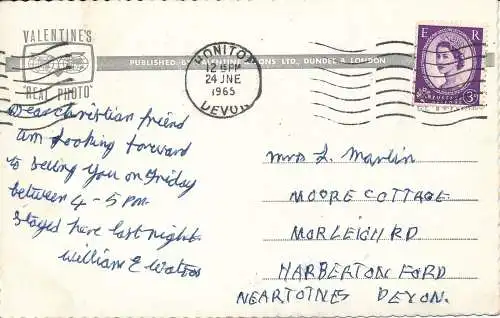 VALENTINE'S
"REAL PHOTO"
PUBLISHED BY VALENTINE & SONS LTD., DUNDEE & LONDON
HONITON
12 PM
24 JNE
1965
DEVON
E R
3D
Dear Christian friend
am looking forward
to seeing you on Friday
between 4-5 pm
Stayed here last night.
William E Watson
Mrs L. Marlin
MOORE COTTAGE
MORLEIGH RD
HARBERTON FORD
NEARTOTNES DEVON.